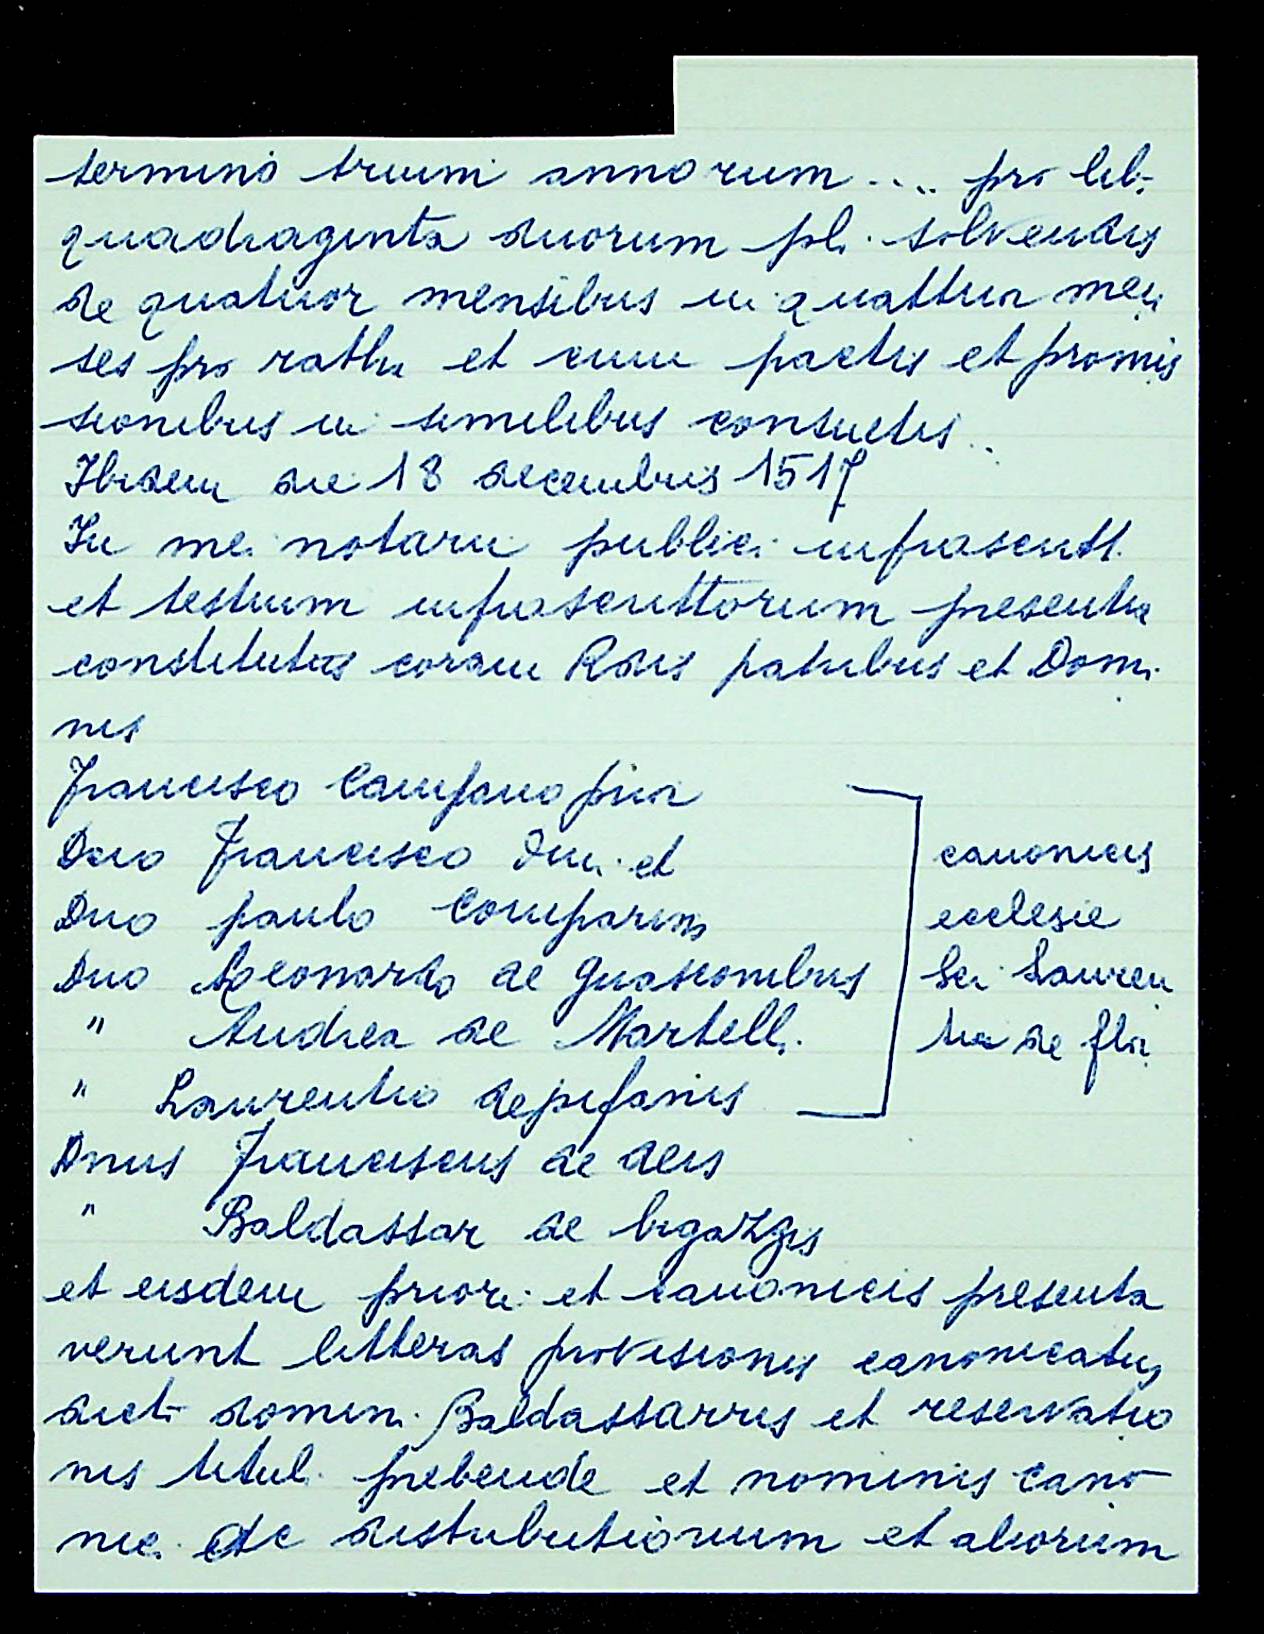 termino trium annorum .... pro lib.
quadraginta duorum pl. solvendis
de quatuor mensibus in quattuor men
ses pro ratha et cum pactis et promis
sionibus in similibus consuetis..
Ibidem die 18 decembris 1517
In mei notarii publici infrascritt.
et testium infrascrittorum presentia
constitutus coram Rdis patribus et Domi
nis
Francisco Campano prior
Dno Francisco Dni. et
Dno paulo Comparini
Dno Leonardo de Guasconibus
" Andrea de Martell.
" Laurentio depifanis
canonicis
ecclesie
Sci Lauren
tii de flor.
Dnus Franciscus de deis
" Baldassar de bigazzis
et eisdem priori et canonicis presenta
verunt litteras provisionis canonicatus
dicti domini Baldassarris et reservatio
nis titul. prebende et nominis cano
nici etc distributionum et aliorum